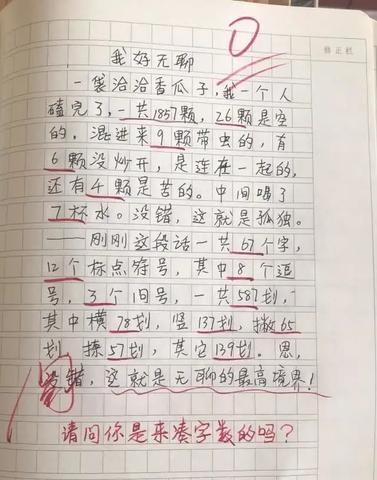 0
修正栏
我好无聊
一袋洽洽香瓜子,我一个人
磕完了,一共1857颗,26颗是空
的。混进来9颗带虫的,有
6颗没炒开,是连在一起的,
还有4颗是苦的。中间喝了
7杯水。没错,这就是孤独。
——刚刚这段话一共67个字,
12个标点符号,其中8个逗
号,3个句号,一共587划,
其中横78划,竖137划,撇65
划 捺57划,其它139划。恩,
没错,这就是无聊的最高境界!
阅
请问你是来凑字数的吗?